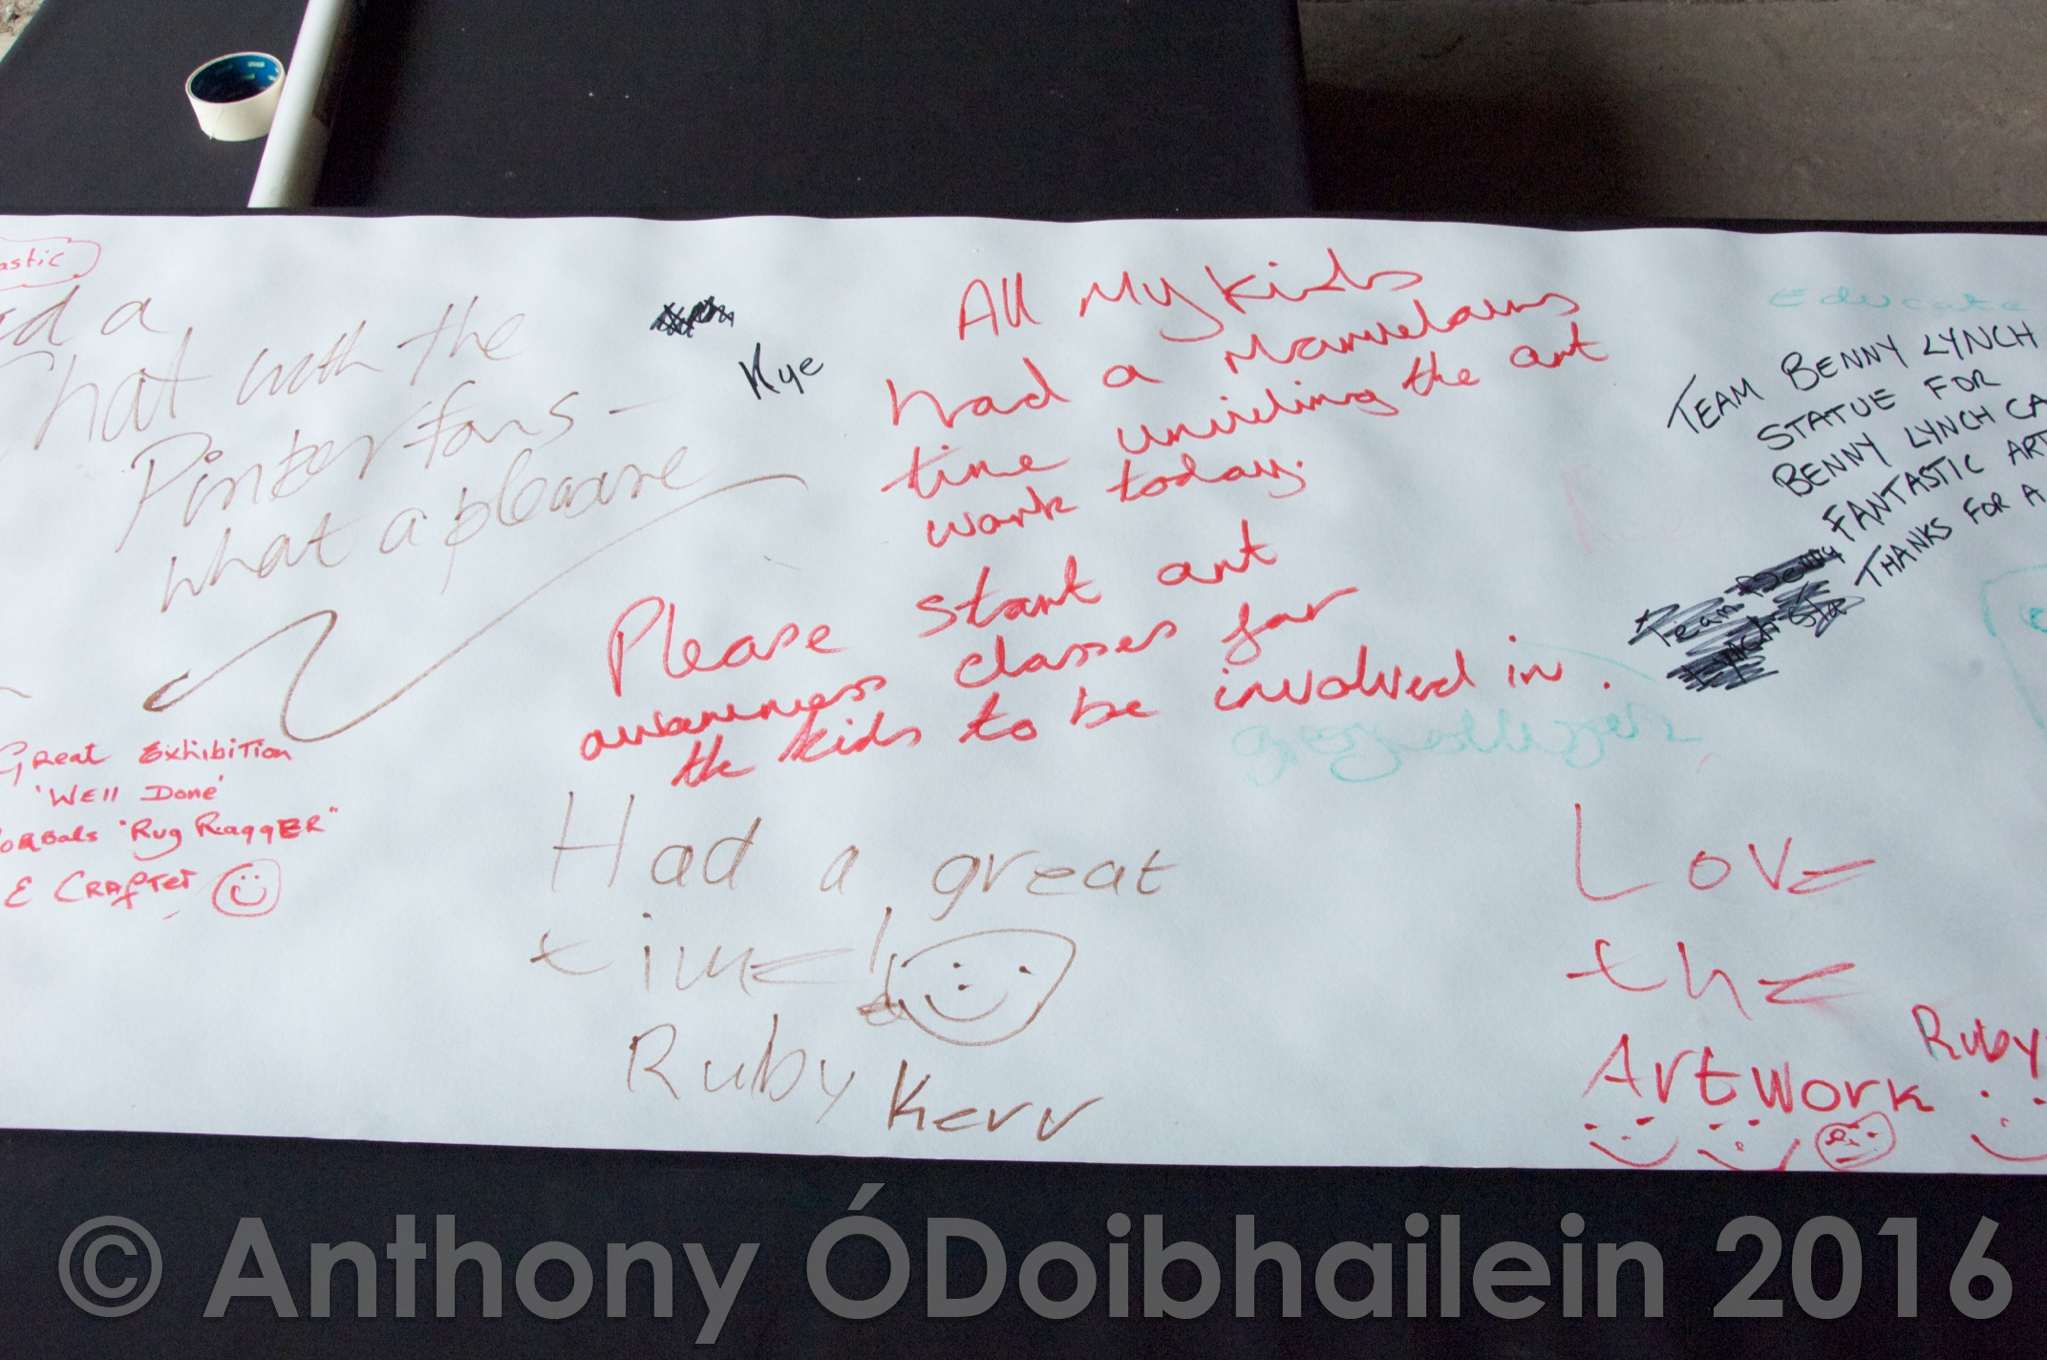 a
Chat with the
Pinter fans -
what a pleasure
Kye
All My kids
had a Marvelous
time unviling the art
work today.
Please start art
awareness classes for
the kids to be involved in.
Educate
TEAM BENNY LYNCH
STATUE FOR
BENNY LYNCH CA
FANTASTIC ART
THANKS FOR A
Team Benny
Great Exhibition
'Well Done'
"Rug RaggER"
& CRAFTer
Had a great
time!
Ruby Kerr
Love
the
Artwork
Ruby
© Anthony ÓDoibhailein 2016